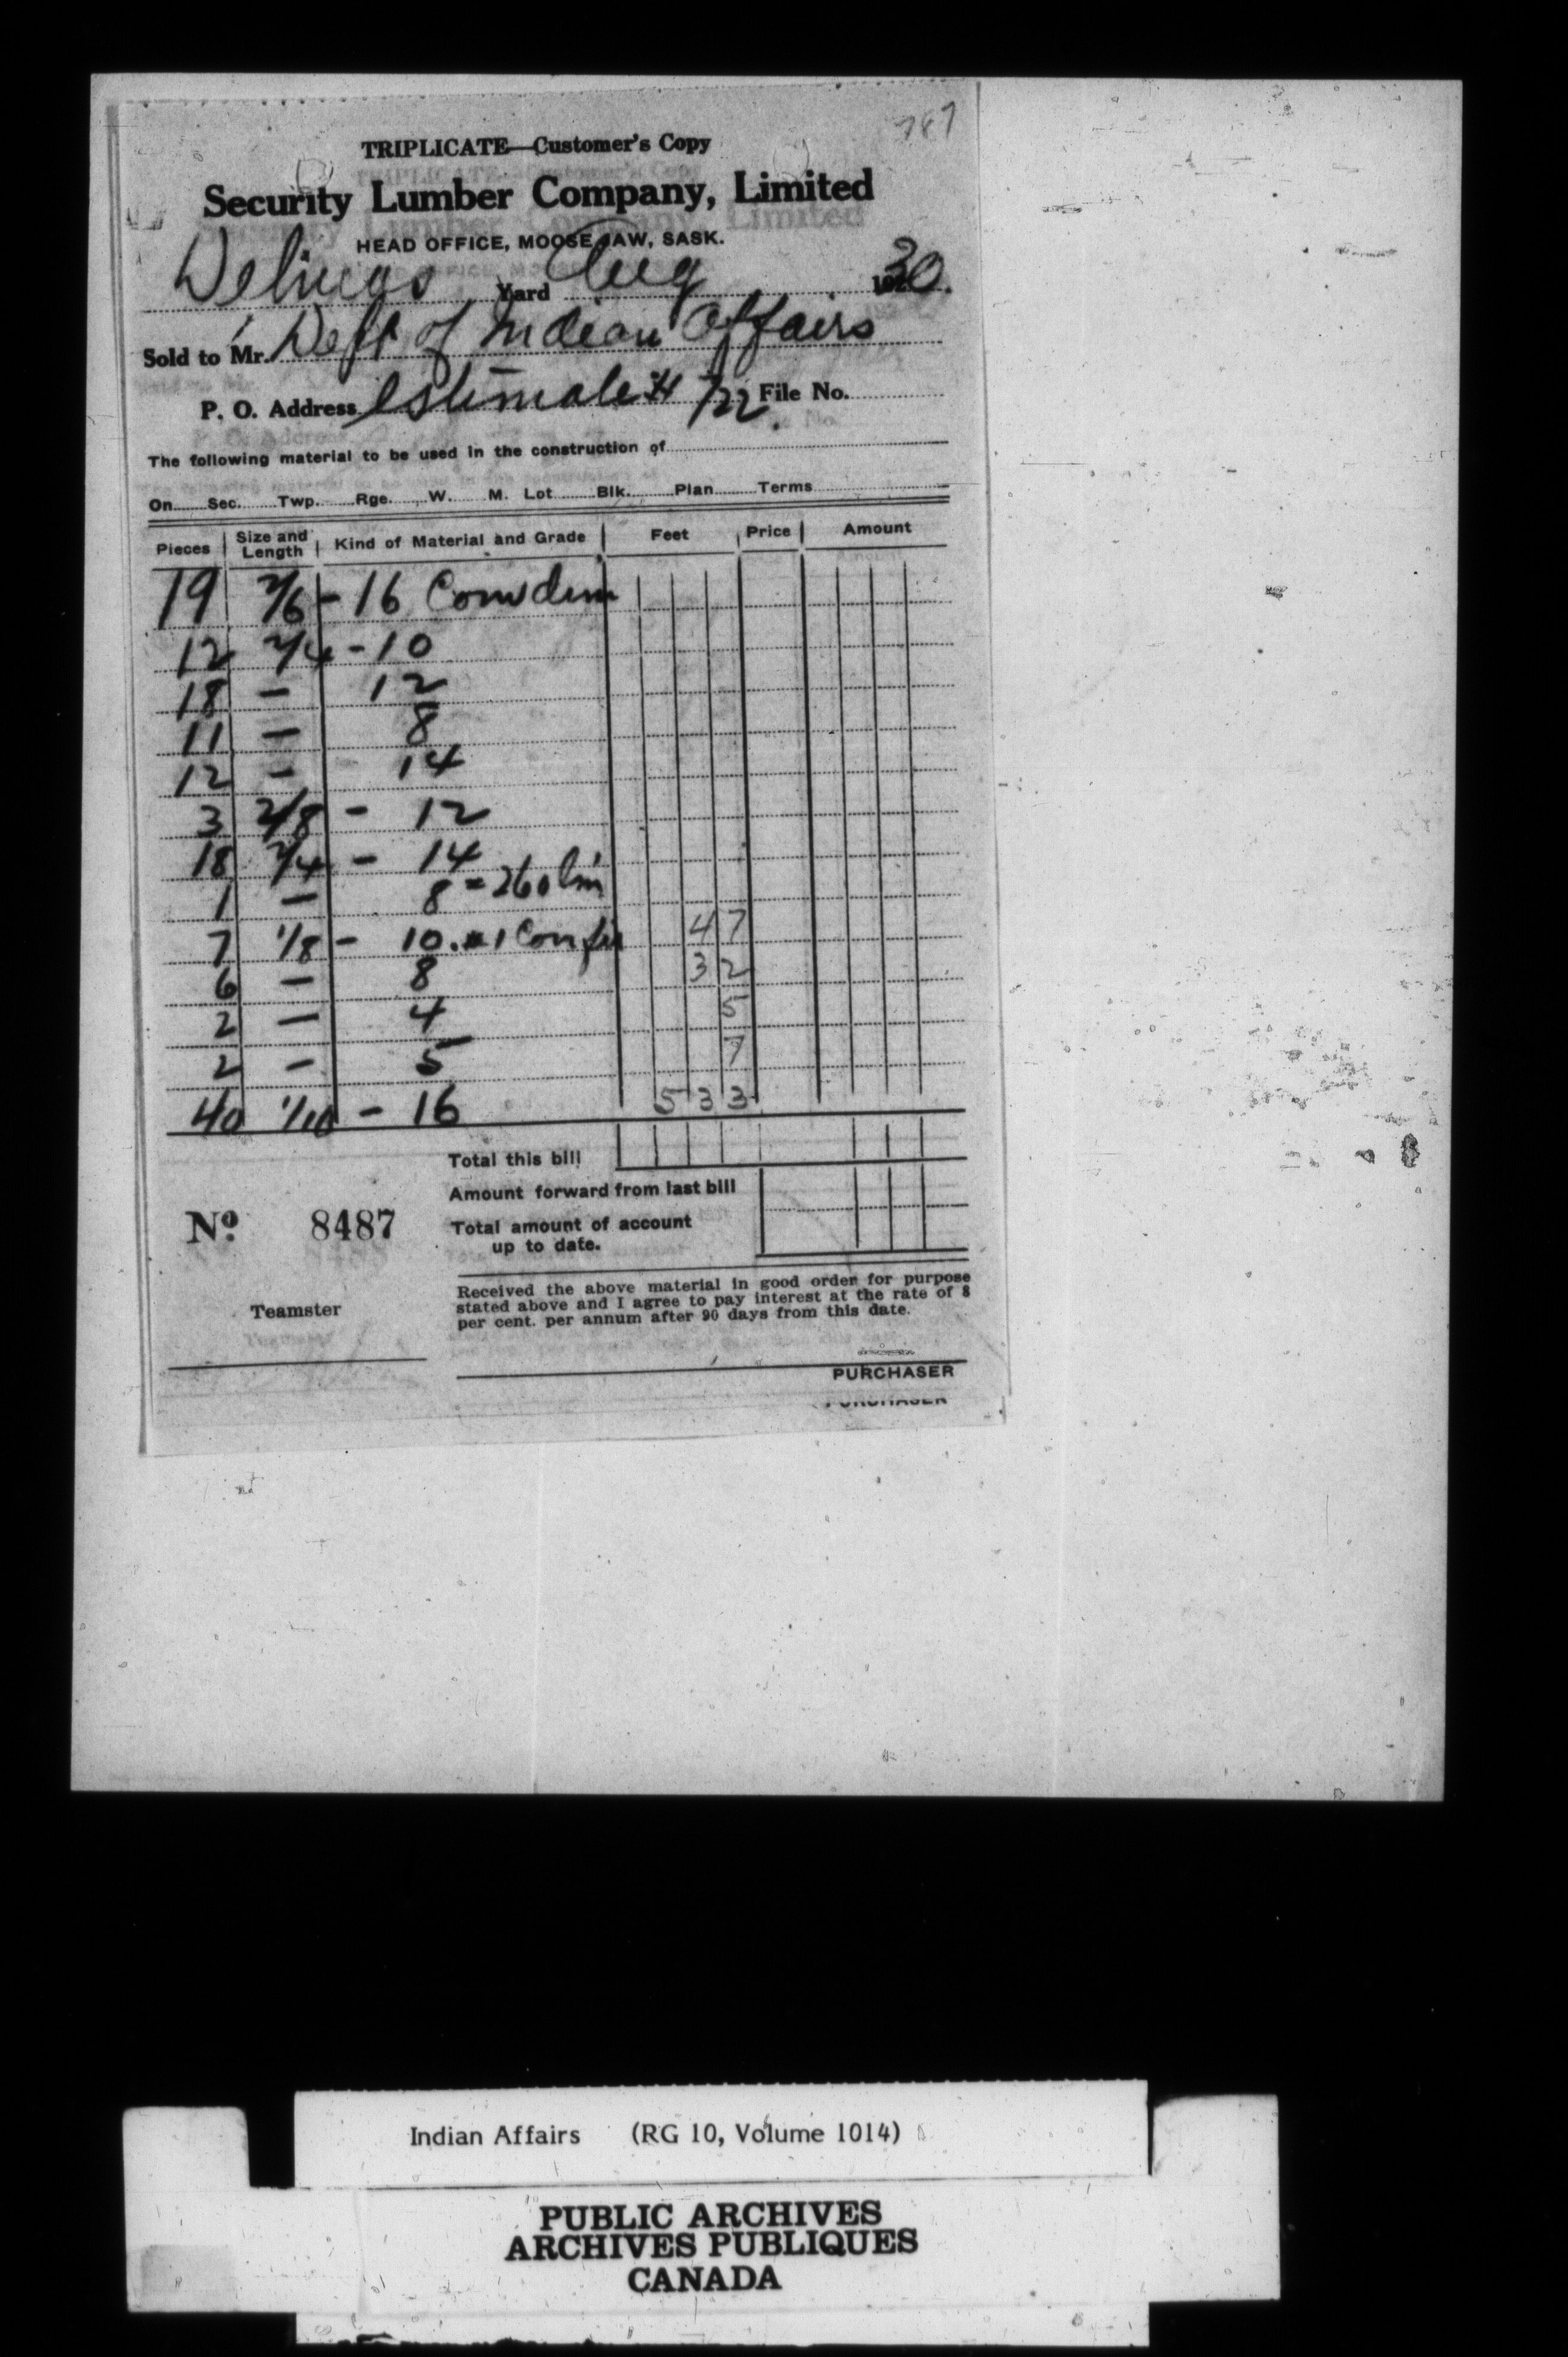 787
TRIPLICATE—Customer's Copy
Security Lumber Company, Limited
HEAD OFFICE, MOOSE JAW, SASK.
Delmas Yard Aug 1930.
Sold to Mr. Dept of Indian Affairs
P. O. Address Estimate # 722. File No.
The following material to be used in the construction of
On Sec. Twp. Rge. W. M. Lot Blk. Plan Terms
Pieces Size and Length Kind of Material and Grade Feet Price Amount
19 2/6 - 16 Com dim
12 2/4 - 10
18 — 12
11 — 8
12 — 14
3 2/8 - 12
18 2/4 - 14
1 — 8 = 260 lin
7 1/8 - 10. #1 Com fir 47
6 — 8 32
2 — 4 5
2 — 5 7
40 1/10 - 16 533
Total this bill
Amount forward from last bill
Total amount of account
up to date.
No. 8487
Teamster
Received the above material in good order for purpose
stated above and I agree to pay interest at the rate of 8
per cent. per annum after 90 days from this date.
PURCHASER
PURCHASER
Indian Affairs (RG 10, Volume 1014)
PUBLIC ARCHIVES
ARCHIVES PUBLIQUES
CANADA